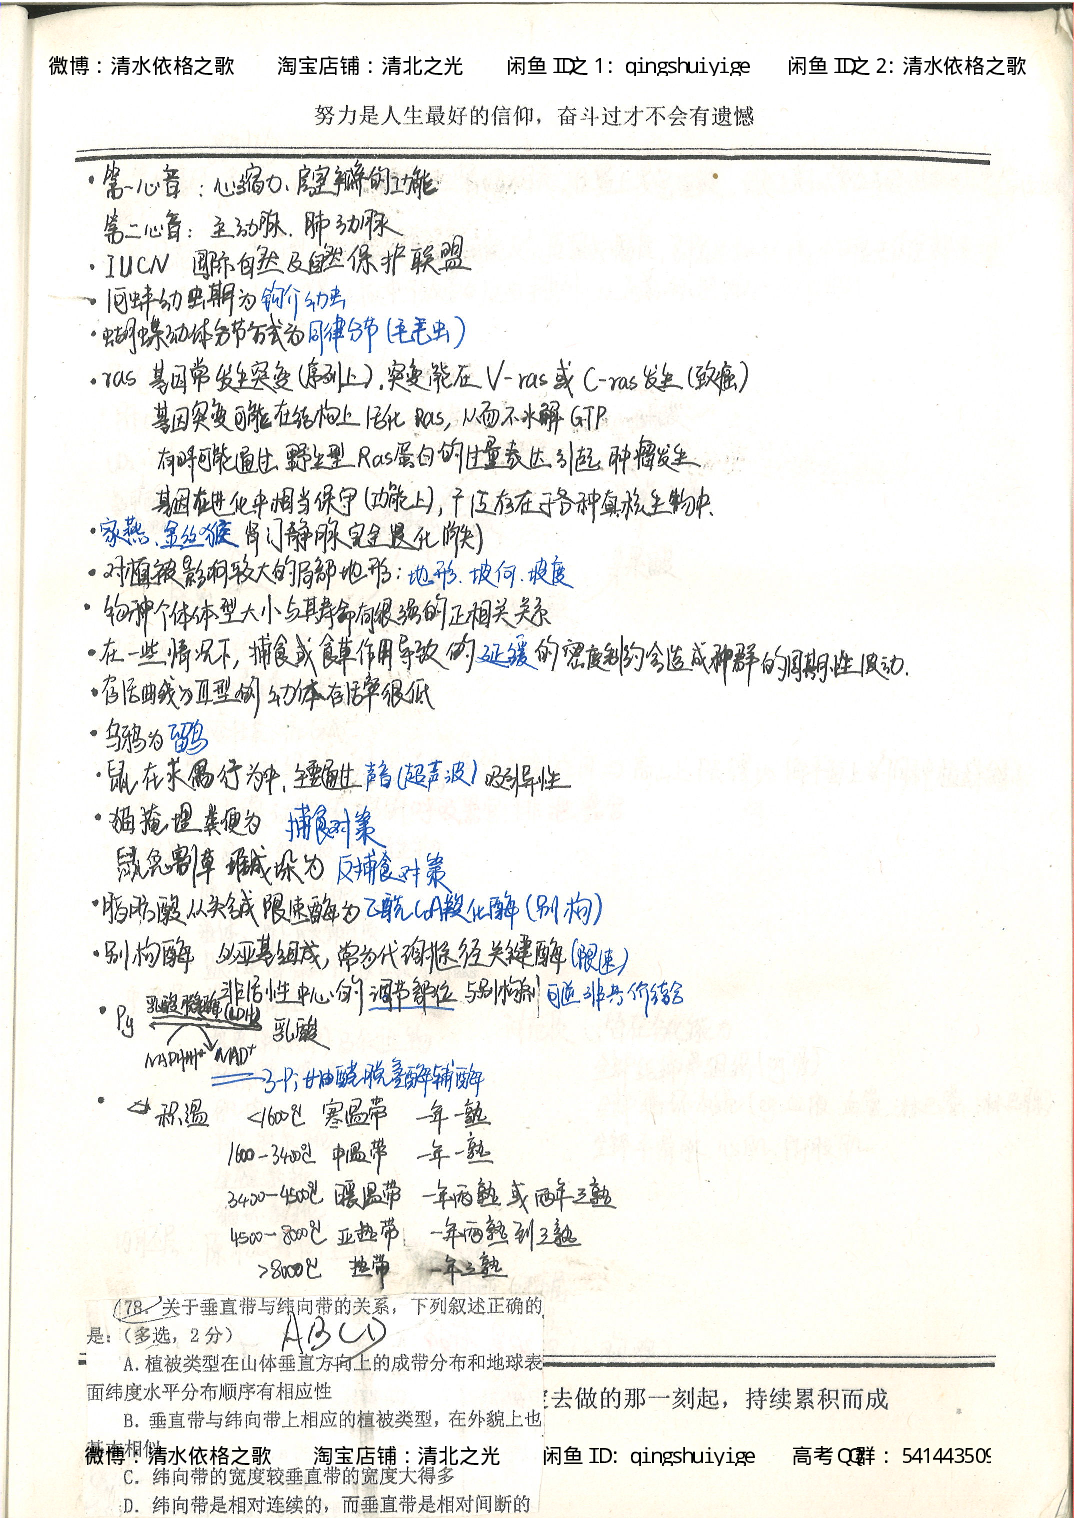 微博：清水依格之歌 淘宝店铺：清北之光 闲鱼 ID之 1: qingshuiyige 闲鱼 ID之 2: 清水依格之歌
努力是人生最好的信仰，奋斗过才不会有遗憾
·第一心音：心缩力、房室瓣的功能
第二心音：主动脉、肺动脉
·IUCN 国际自然及自然保护联盟
·河蚌幼虫期为钩介幼虫
·蝴蝶幼体分节方式为同律分节(毛毛虫)
·ras 基因常发生突变(序列上),突变能在V-ras或C-ras发生(致癌)
基因突变可能在结构上活化Ras,从而不水解GTP
有时可能通过野生型Ras蛋白的过量表达引起肿瘤发生
基因在进化中相当保守(功能上),广泛存在于各种真核生物中.
·家燕、金丝猴 肾门静脉完全退化消失)
·对植被影响较大的局部地形：地形.坡向.坡度
·物种个体体型大小与其寿命有很强的正相关关系
·在一些情况下,捕食或食草作用导致的延缓的密度制约会造成种群的周期性波动.
·存活曲线为Ⅲ型的幼体存活率很低
·乌鸦为留鸟
·鼠在求偶行为中,主要通过声音(超声波)吸引异性
·猫掩埋粪便为 捕食对策
鼠兔割草堆成垛为 反捕食对策
·脂肪酸从头合成限速酶为乙酰CoA羧化酶(别构)
·别构酶 多亚基组成,常为代谢途径关键酶(限速)
非活性中心的调节部位与别构剂可逆非共价结合
·Py 乳酸脱氢酶(LDH) 乳酸
NADH+H⁺ NAD⁺
3-P-甘油醛脱氢酶辅酶
·积温 <1600℃ 寒温带 一年一熟
1600-3400℃ 中温带 一年一熟
3400-4500℃ 暖温带 一年两熟或两年三熟
4500-8000℃ 亚热带 一年两熟到三熟
>8000℃ 热带 一年三熟
78. 关于垂直带与纬向带的关系，下列叙述正确的
是：（多选，2 分） ABCD
A. 植被类型在山体垂直方向上的成带分布和地球表
面纬度水平分布顺序有相应性
去做的那一刻起，持续累积而成
B. 垂直带与纬向带上相应的植被类型，在外貌上也
基本相似
微博：清水依格之歌 淘宝店铺：清北之光 闲鱼 ID: qingshuiyige 高考 QQ群： 541443509
C. 纬向带的宽度较垂直带的宽度大得多
D. 纬向带是相对连续的，而垂直带是相对间断的